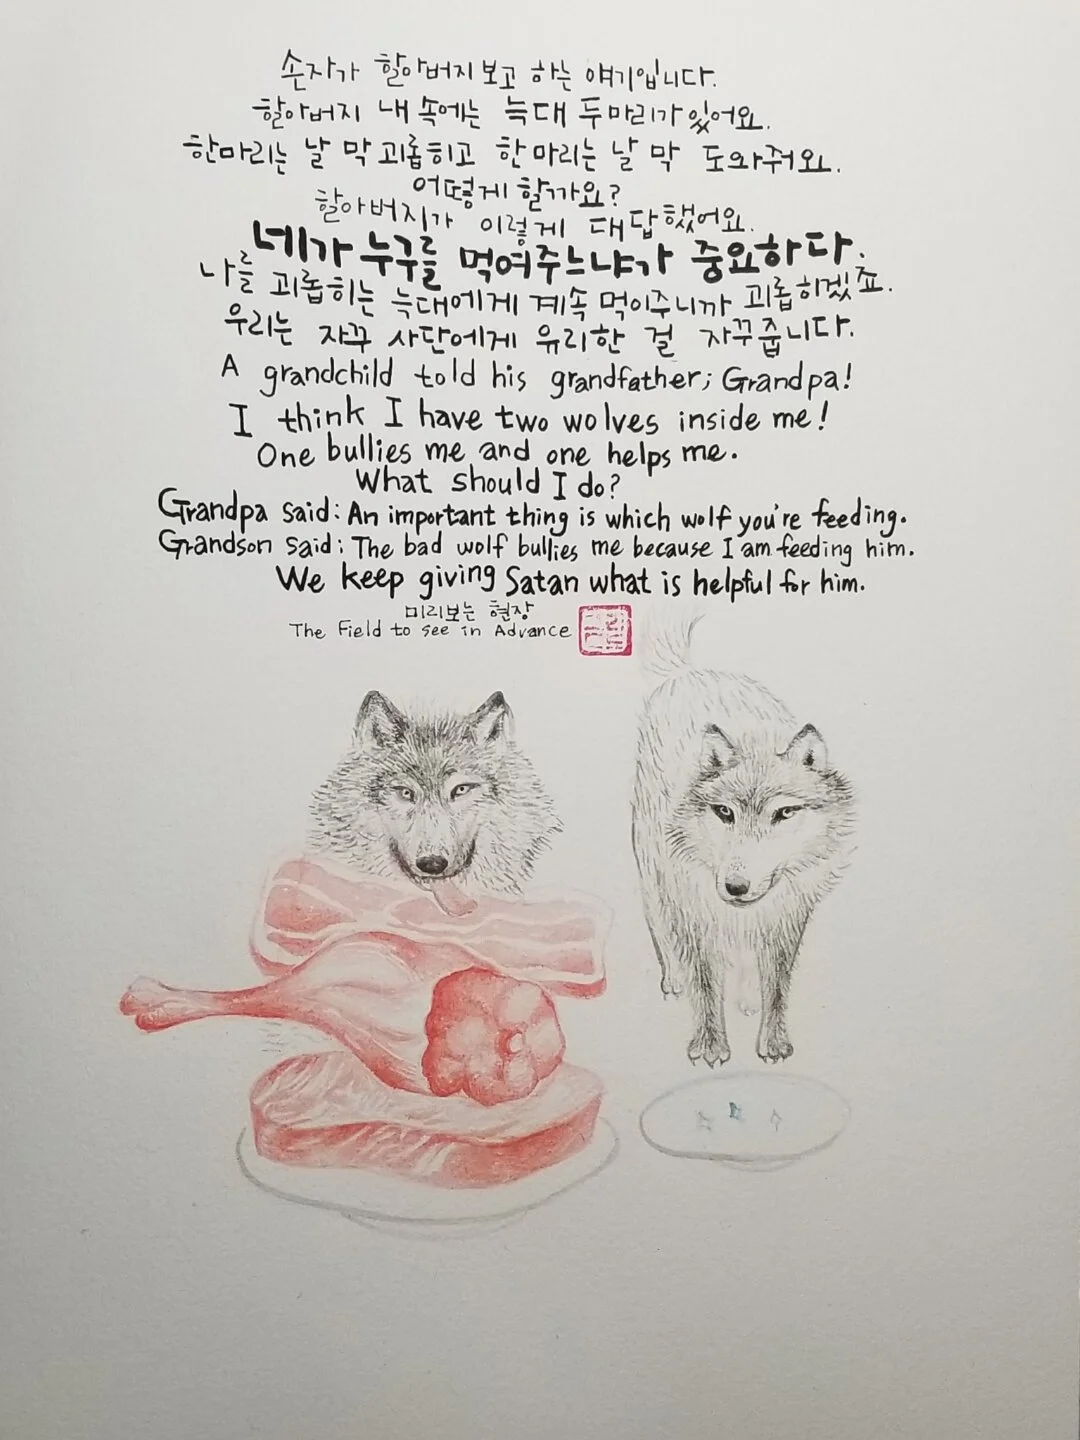 손자가 할아버지보고 하는 얘기입니다.
할아버지 내 속에는 늑대 두마리가 있어요.
한마리는 날 막 괴롭히고 한마리는 날 막 도와줘요.
어떻게 할까요?
할아버지가 이렇게 대답했어요.
네가 누구를 먹여주느냐가 중요하다.
나를 괴롭히는 늑대에게 계속 먹이주니까 괴롭히겠죠.
우리는 자꾸 사단에게 유리한 걸 자꾸줍니다.
A grandchild told his grandfather; Grandpa!
I think I have two wolves inside me!
One bullies me and one helps me.
What should I do?
Grandpa said: An important thing is which wolf you're feeding.
Grandson said: The bad wolf bullies me because I am feeding him.
We keep giving Satan what is helpful for him.
미리보는 현장
The Field to see in Advance